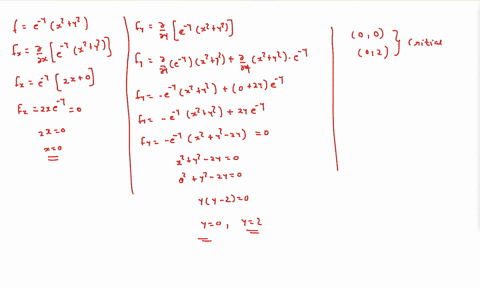 f = e^-y (x² + y²)
fx = ∂/∂x [e^-y (x² + y²)]
fx = e^-y [2x + 0]
fx = 2x e^-y = 0
2x = 0
x = 0
fy = ∂/∂y [e^-y (x² + y²)]
fy = ∂/∂y (e^-y) (x² + y²) + ∂/∂y (x² + y²) · e^-y
fy = -e^-y (x² + y²) + (0 + 2y) e^-y
fy = -e^-y (x² + y²) + 2y e^-y
fy = -e^-y (x² + y² - 2y) = 0
x² + y² - 2y = 0
0² + y² - 2y = 0
y (y - 2) = 0
y = 0 , y = 2
(0, 0)
(0, 2) } critical